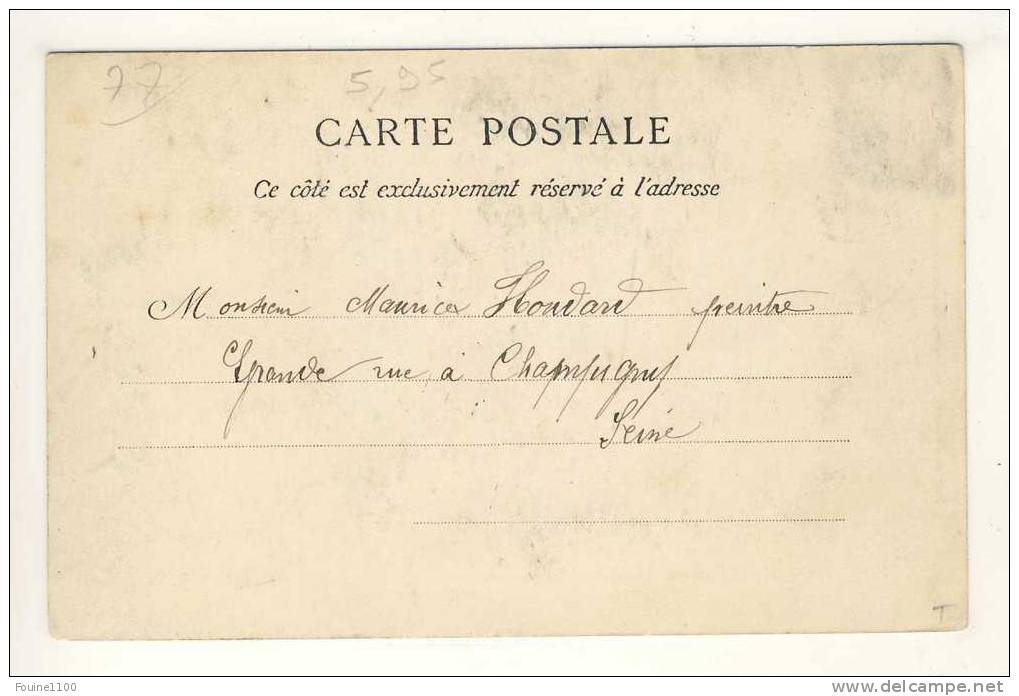 77
5,95
CARTE POSTALE
Ce côté est exclusivement réservé à l'adresse
Monsieur Maurice Houdard peintre
Grande rue, à Champigny
Seine
T
Foune1100
delcampe.net